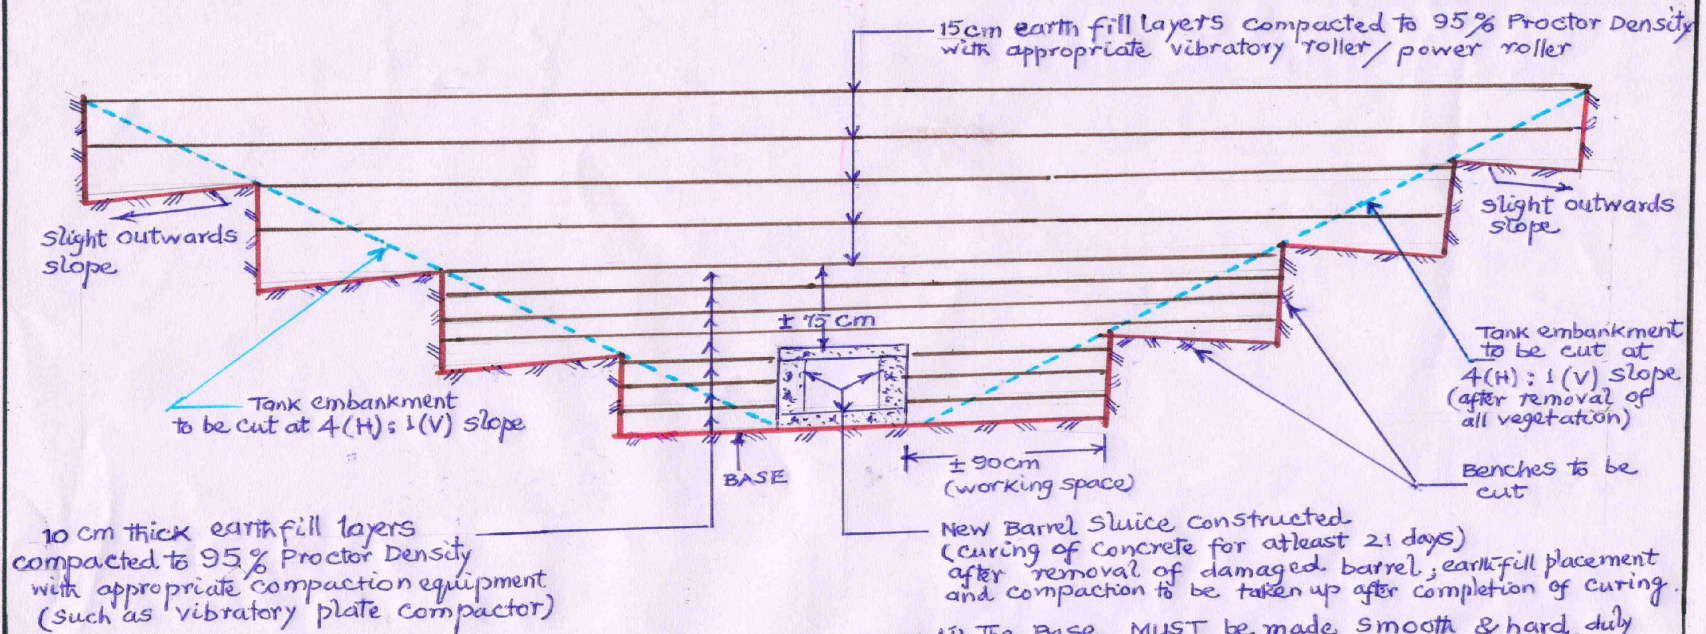 15cm earth fill layers compacted to 95% Proctor Density
with appropriate vibratory roller/power roller
slight outwards
slope
slight outwards
slope
± 75 cm
Tank embankment
to be cut at
4(H) : 1(V) slope
(after removal of
all vegetation)
Tank embankment
to be cut at 4(H) : 1(V) slope
BASE
± 90cm
(working space)
Benches to be
cut
10 cm thick earthfill layers
compacted to 95% Proctor Density
with appropriate compaction equipment
(such as vibratory plate compactor)
New Barrel Sluice constructed
(curing of concrete for atleast 21 days)
after removal of damaged barrel; earthfill placement
and compaction to be taken up after completion of curing.
The Base MUST be made smooth & hard duly